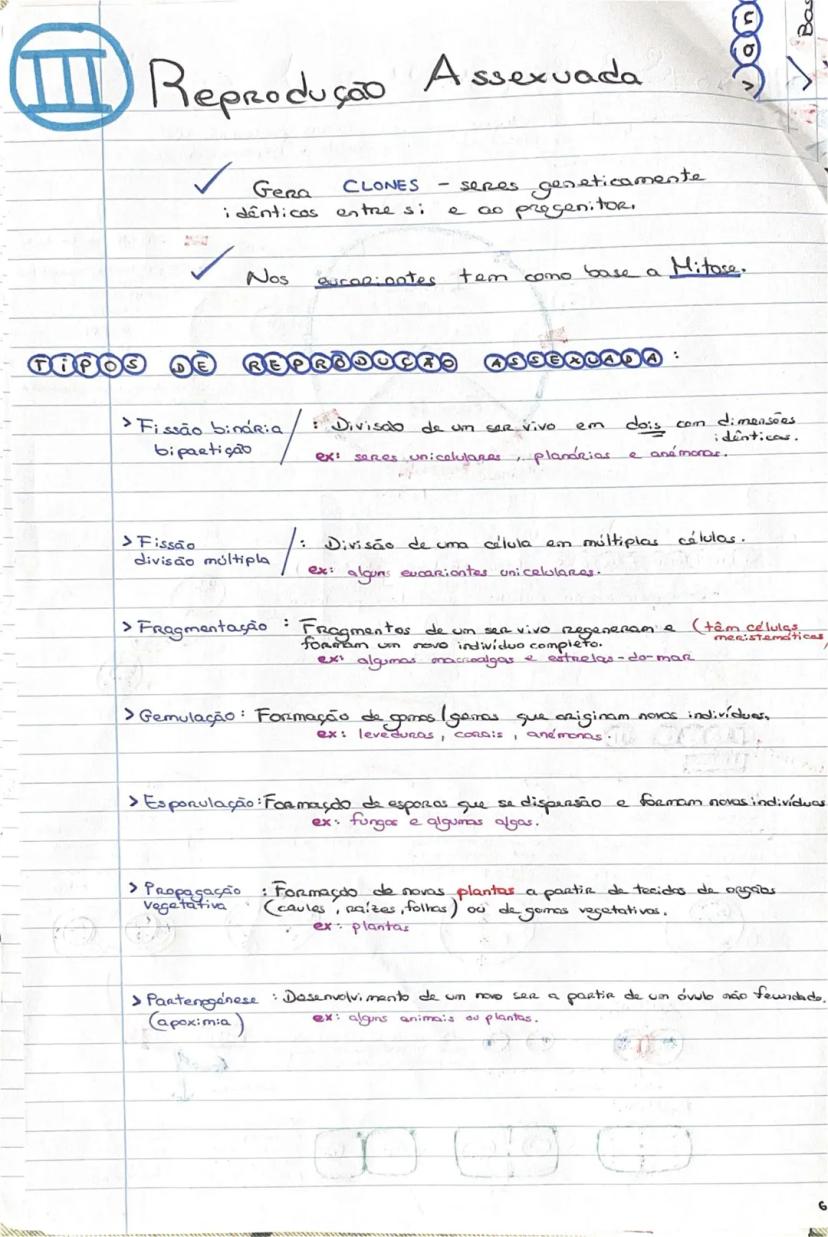 III Reprodução Assexuada
✓ Gera CLONES - seres geneticamente
idênticos entre si e ao progenitor.
✓ Nos eucariontes tem como base a Mitose.
TIPOS DE REPRODUÇÃO ASSEXUADA:
> Fissão binária / : Divisão de um ser vivo em dois com dimensões
bipartição idênticas.
ex: seres unicelulares, planárias e anémonas.
> Fissão / : Divisão de uma célula em múltiplas células.
divisão múltipla ex: alguns eucariontes unicelulares.
> Fragmentação : Fragmentos de um ser vivo regeneram e (têm células
formam um novo indivíduo completo. meristemáticas)
ex: algumas macroalgas e estrelas-do-mar
> Gemulação : Formação de gomos/gemas que originam novos indivíduos.
ex: leveduras, corais, anémonas.
> Esporulação : Formação de esporos que se dispersão e formam novos indivíduos
ex: fungos e algumas algas.
> Propagação : Formação de novas plantas a partir de tecidos de orgãos
vegetativa (caules, raízes, folhas) ou de gomos vegetativos.
ex: plantas
> Partenogénese : Desenvolvimento de um novo ser a partir de um óvulo não fecundado.
(apoximia) ex: alguns animais ou plantas.
6